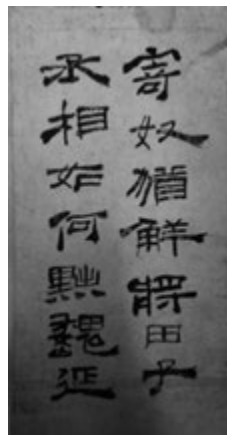 寄奴猶觧將田子
丞相如何黜魏延